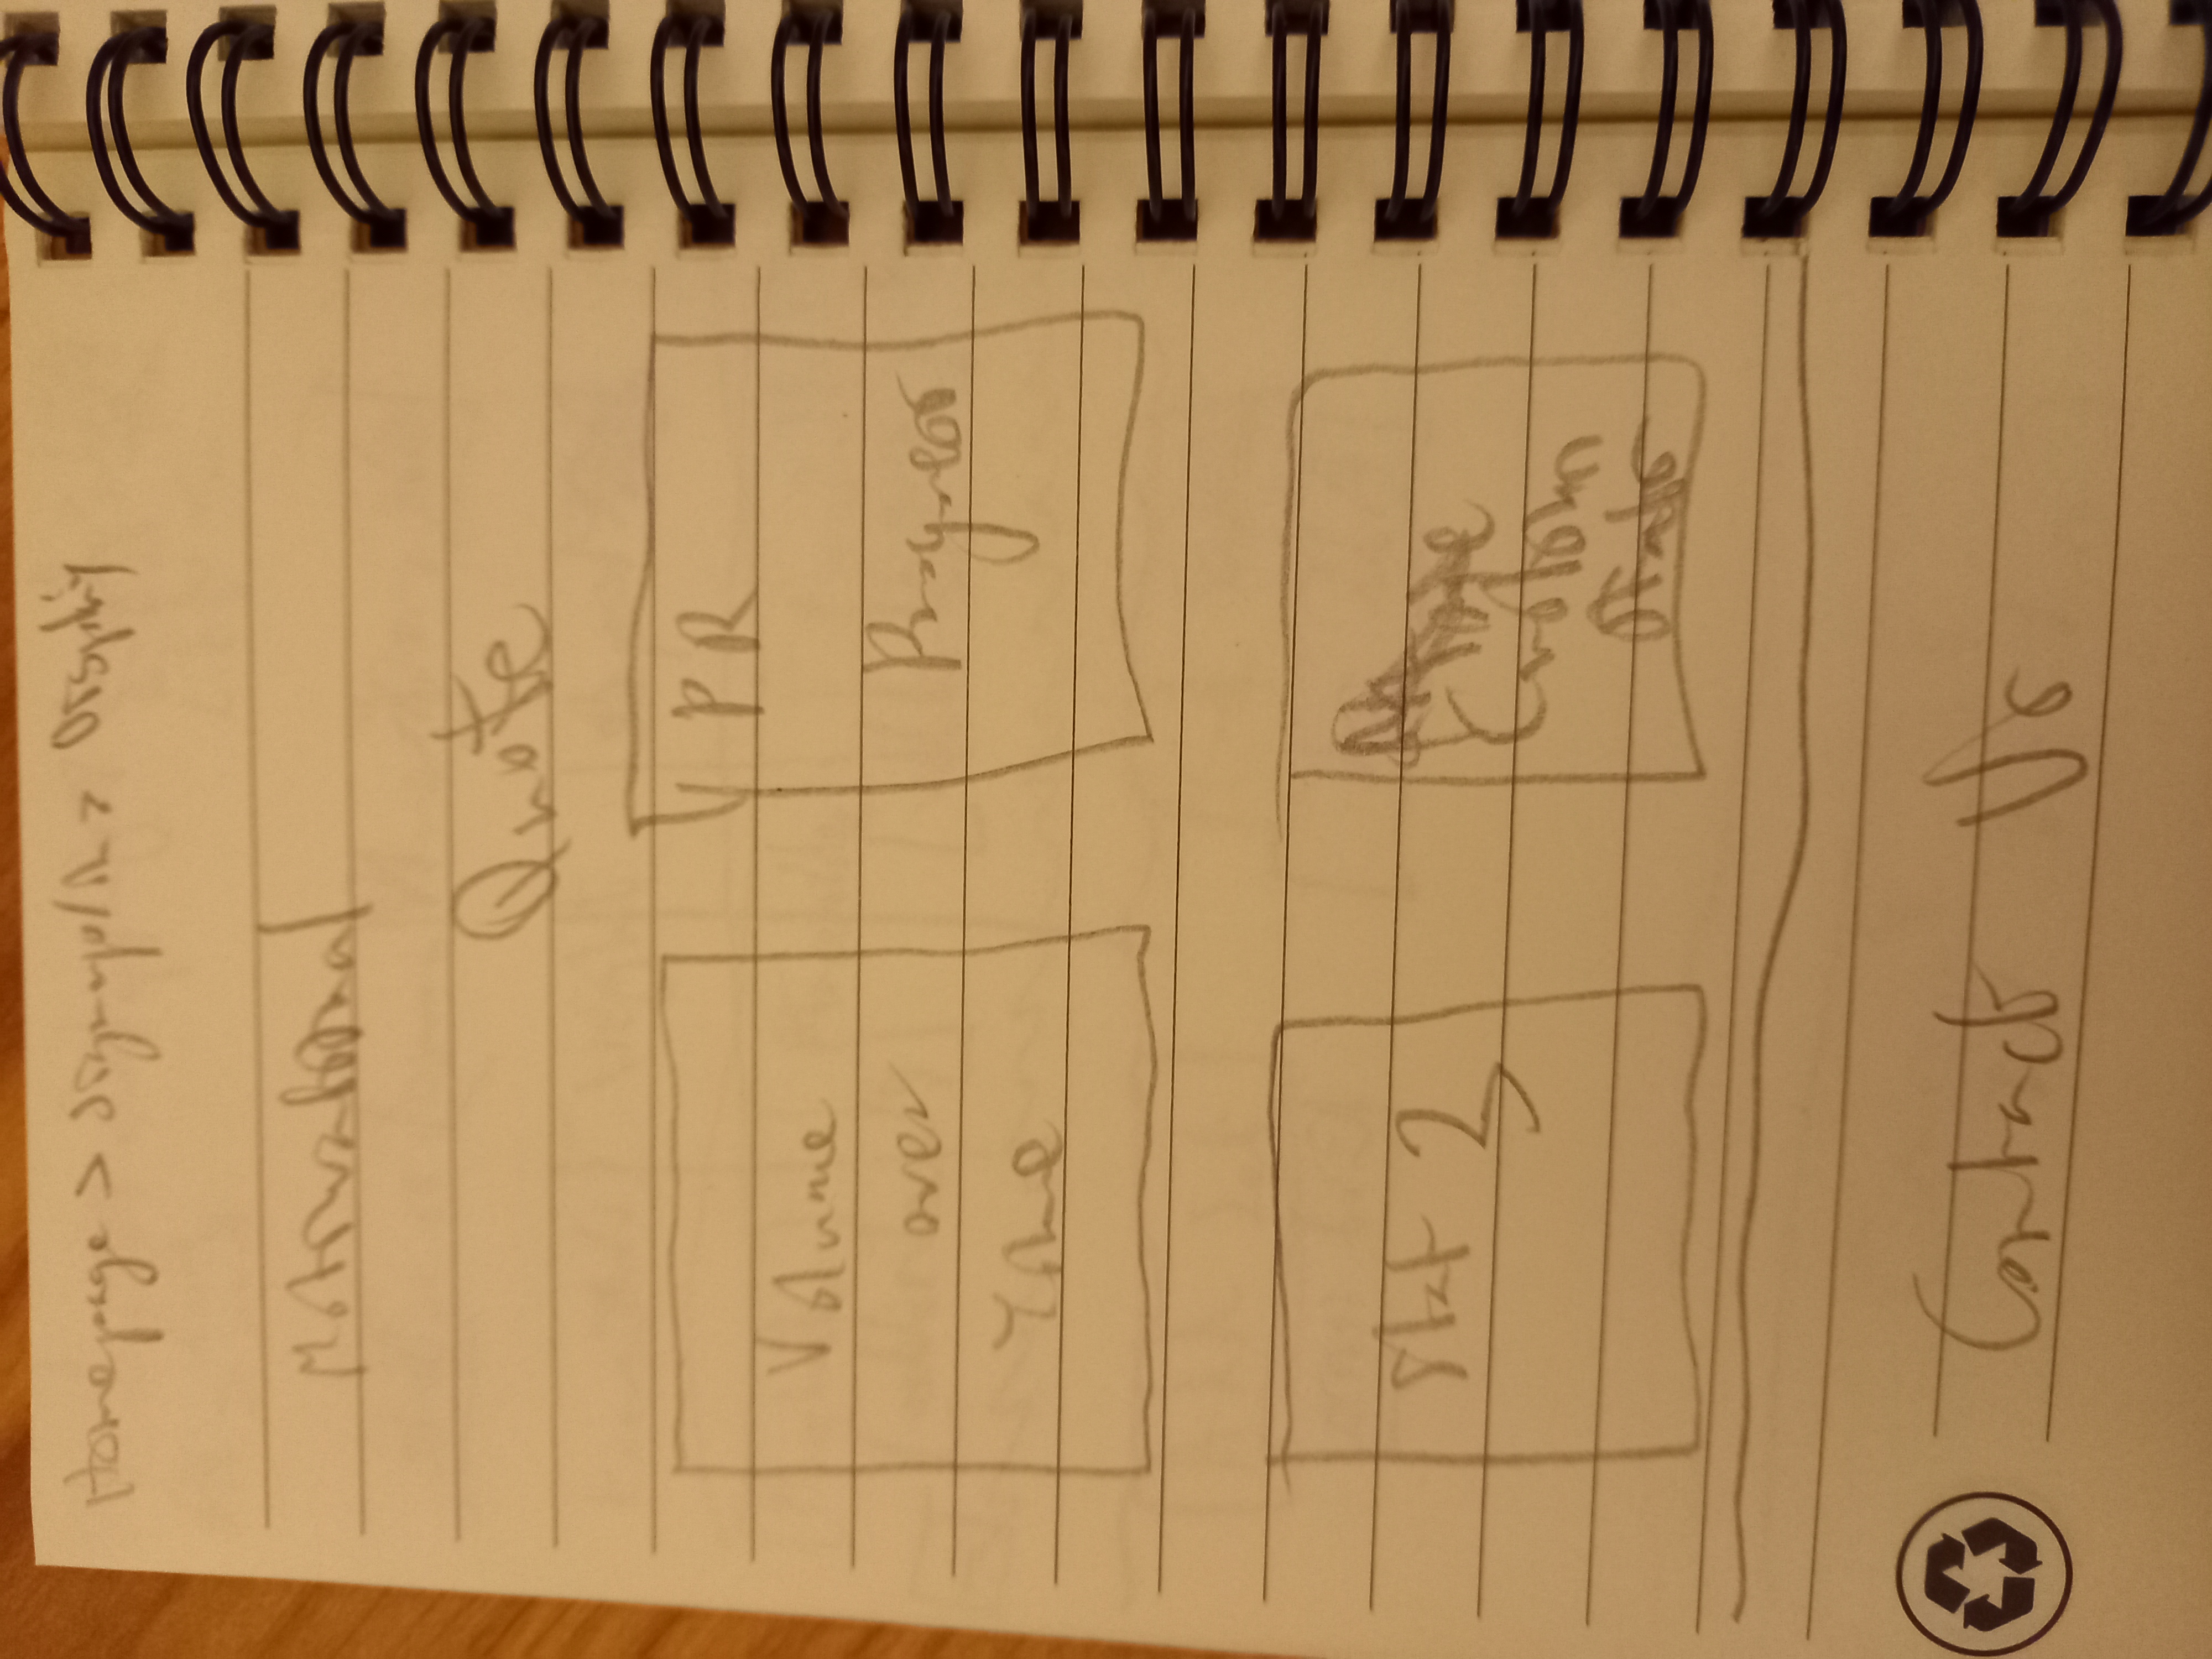 Homepage > Signup/In > Display
Motivational
Quote
Volume
over
Time
PR
Progress
Stat 3
Custom
Stats
Contact Us